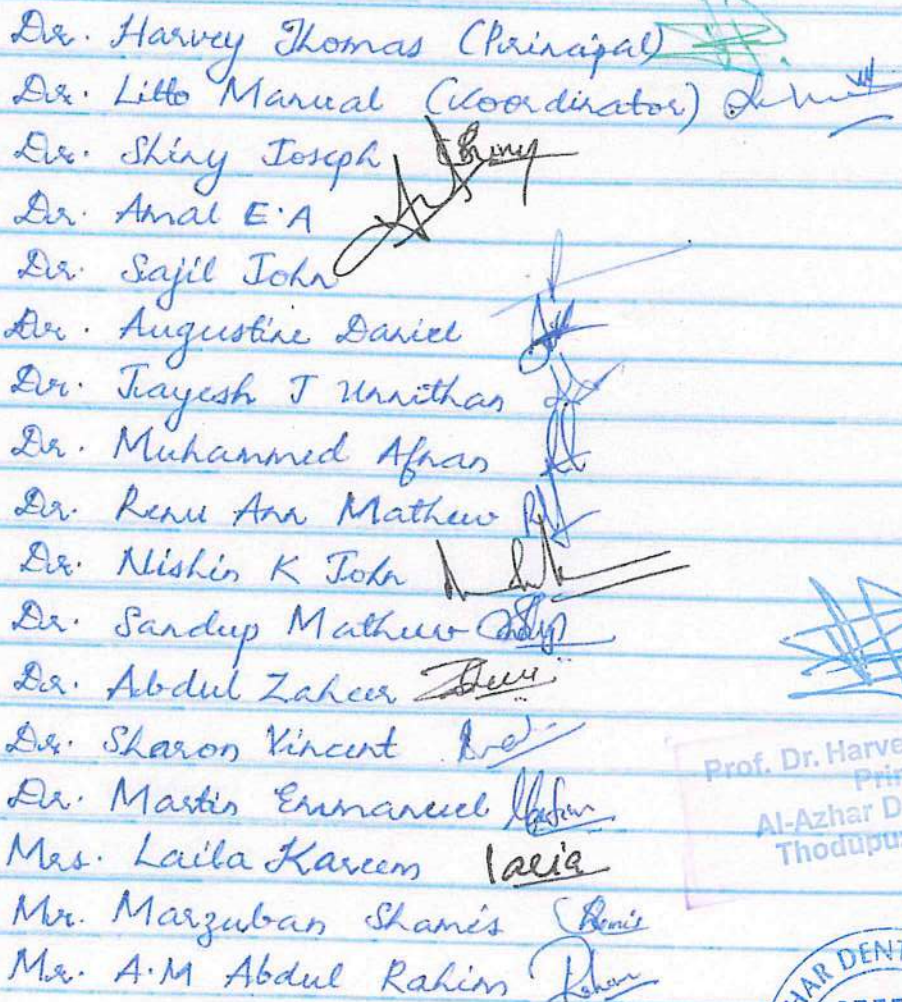 Dr. Harvey Thomas (Principal)
Dr. Litto Manual (Coordinator)
Dr. Shiny Joseph Shiny
Dr. Amal E.A
Dr. Sajil John
Dr. Augustine Daniel
Dr. Jayesh J Unnithan
Dr. Muhammed Afnan
Dr. Renu Ann Mathew
Dr. Nishin K John
Dr. Sandup Mathew
Dr. Abdul Zaheer
Dr. Sharon Vincent
Dr. Martin Emmanuel
Mrs. Laila Kareem laila
Mr. Marzuban Shamis
Mr. A.M Abdul Rahim
Prof. Dr. Harve
Prin
Al-Azhar D
Thodupu
HAR DENT